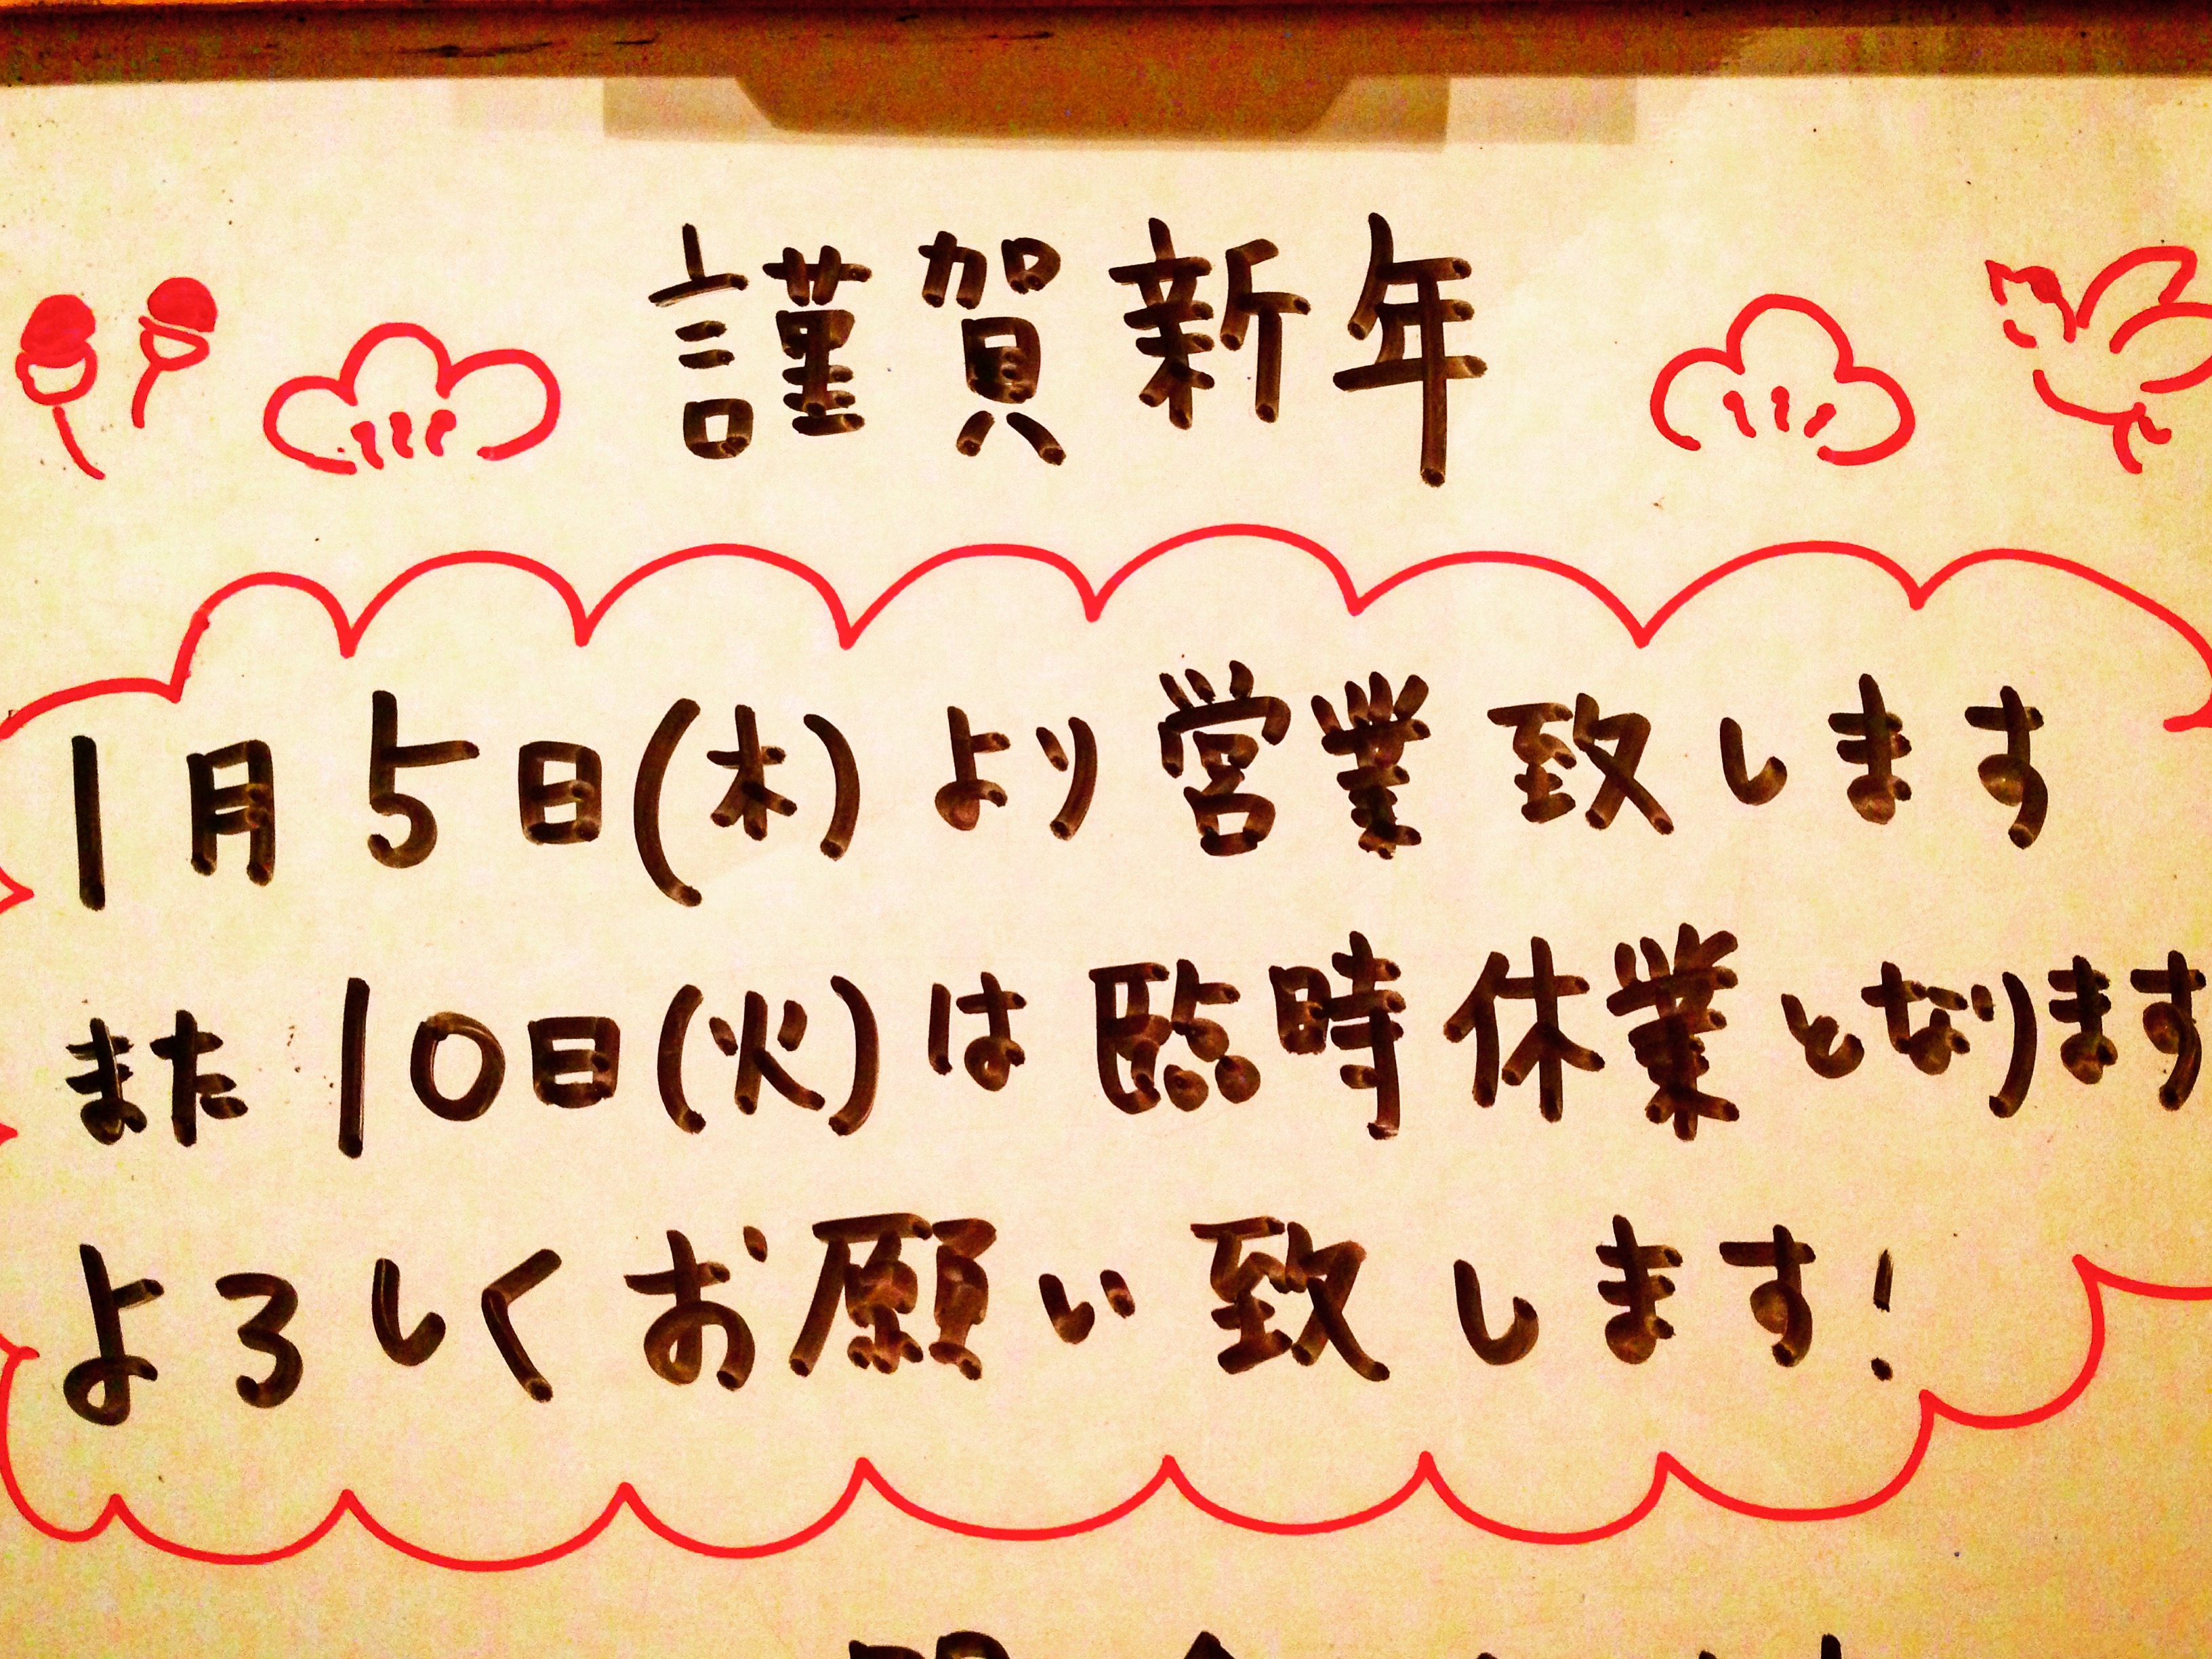 謹賀新年
1月5日(木)より営業致します
また10日(火)は臨時休業となります
よろしくお願い致します!